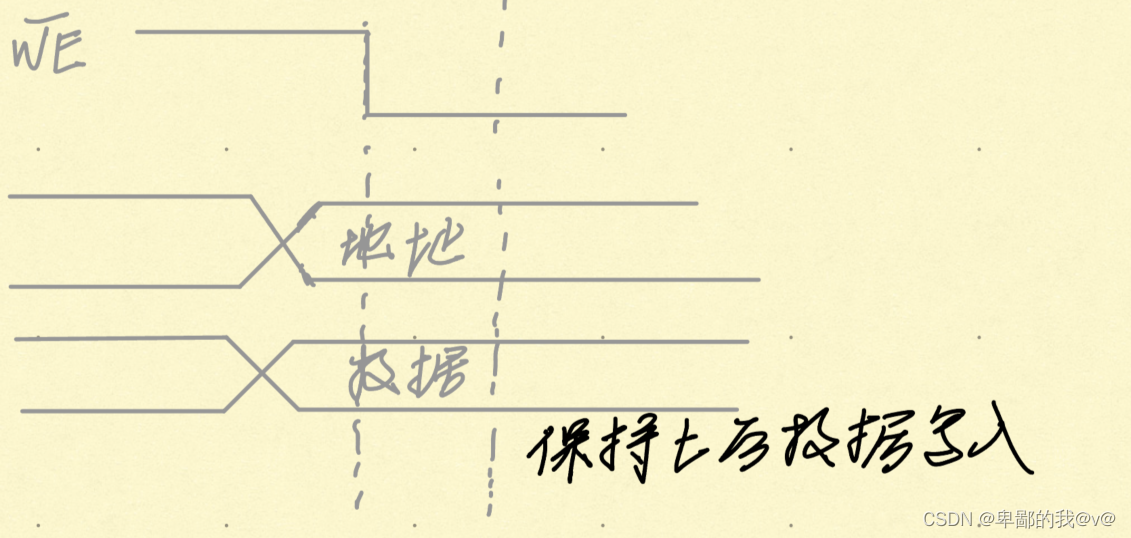 W̅E̅
地址
数据
保持t后数据写入
CSDN @卑鄙的我@v@